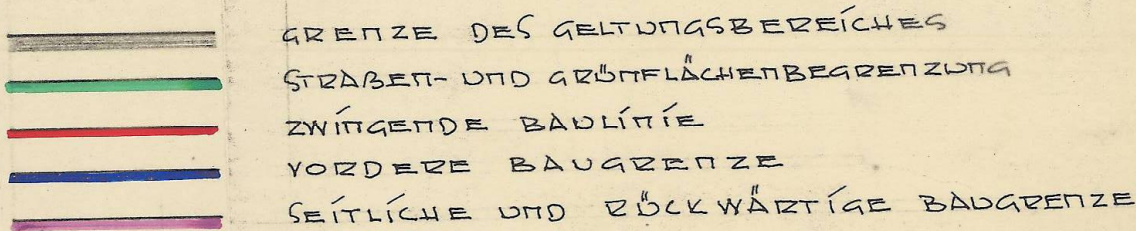 GRENZE DES GELTUNGSBEREICHES
STRAßEN- UND GRÜNFLÄCHENBEGRENZUNG
ZWINGENDE BAULINIE
VORDERE BAUGRENZE
SEITLICHE UND RÜCKWÄRTIGE BAUGRENZE